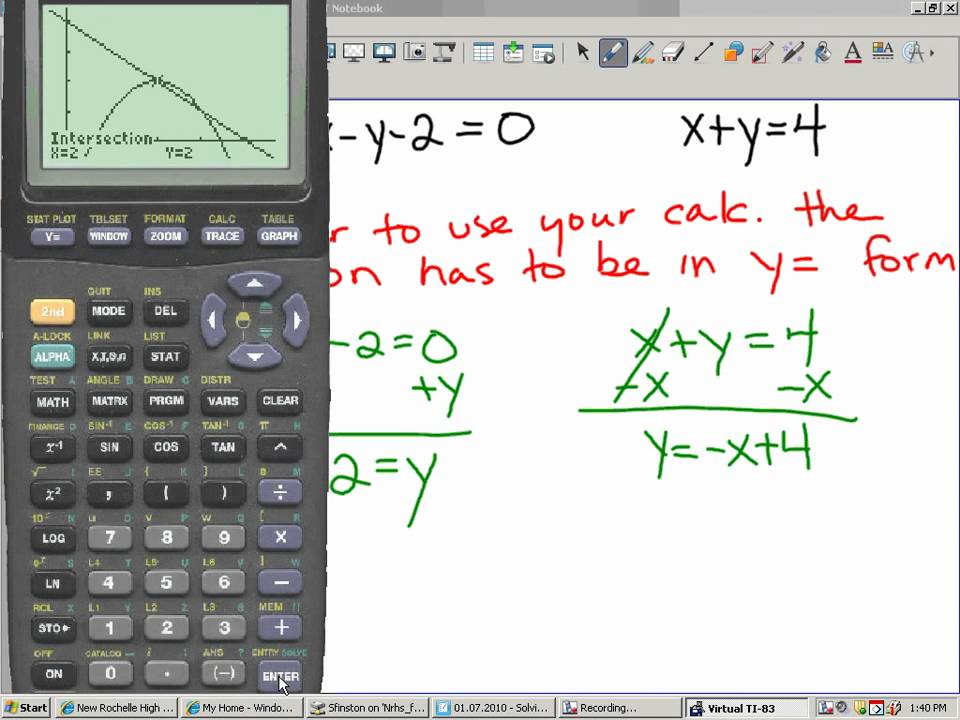 Notebook
Intersection
X=2 Y=2
x-y-2=0 x+y=4
r to use your calc. the
on has to be in y= form
-2=0 x+y=4
+y -x -x
2=y y=-x+4
STAT PLOT TBLSET FORMAT CALC TABLE
Y= WINDOW ZOOM TRACE GRAPH
QUIT INS
2nd MODE DEL
A-LOCK LINK LIST
ALPHA X,T,θ,n STAT
TEST A ANGLE B DRAW C DISTR
MATH MATRX PRGM VARS CLEAR
FINANCE D SIN⁻¹ E COS⁻¹ F TAN⁻¹ G π H
x⁻¹ SIN COS TAN ^
√ I EE J { K } L e M
x² , ( ) ÷
10ˣ N u O v P w Q [ R
LOG 7 8 9 ×
eˣ S L4 T L5 U L6 V ] W
LN 4 5 6 −
RCL X L1 Y L2 Z L3 θ MEM "
STO▸ 1 2 3 +
OFF CATALOG i : ANS ? ENTRY SOLVE
ON 0 . (−) ENTER
Start New Rochelle High ... My Home - Windo... Sfinston on 'Nrhs_f... 01.07.2010 - Solvi... Recording... Virtual TI-83 1:40 PM